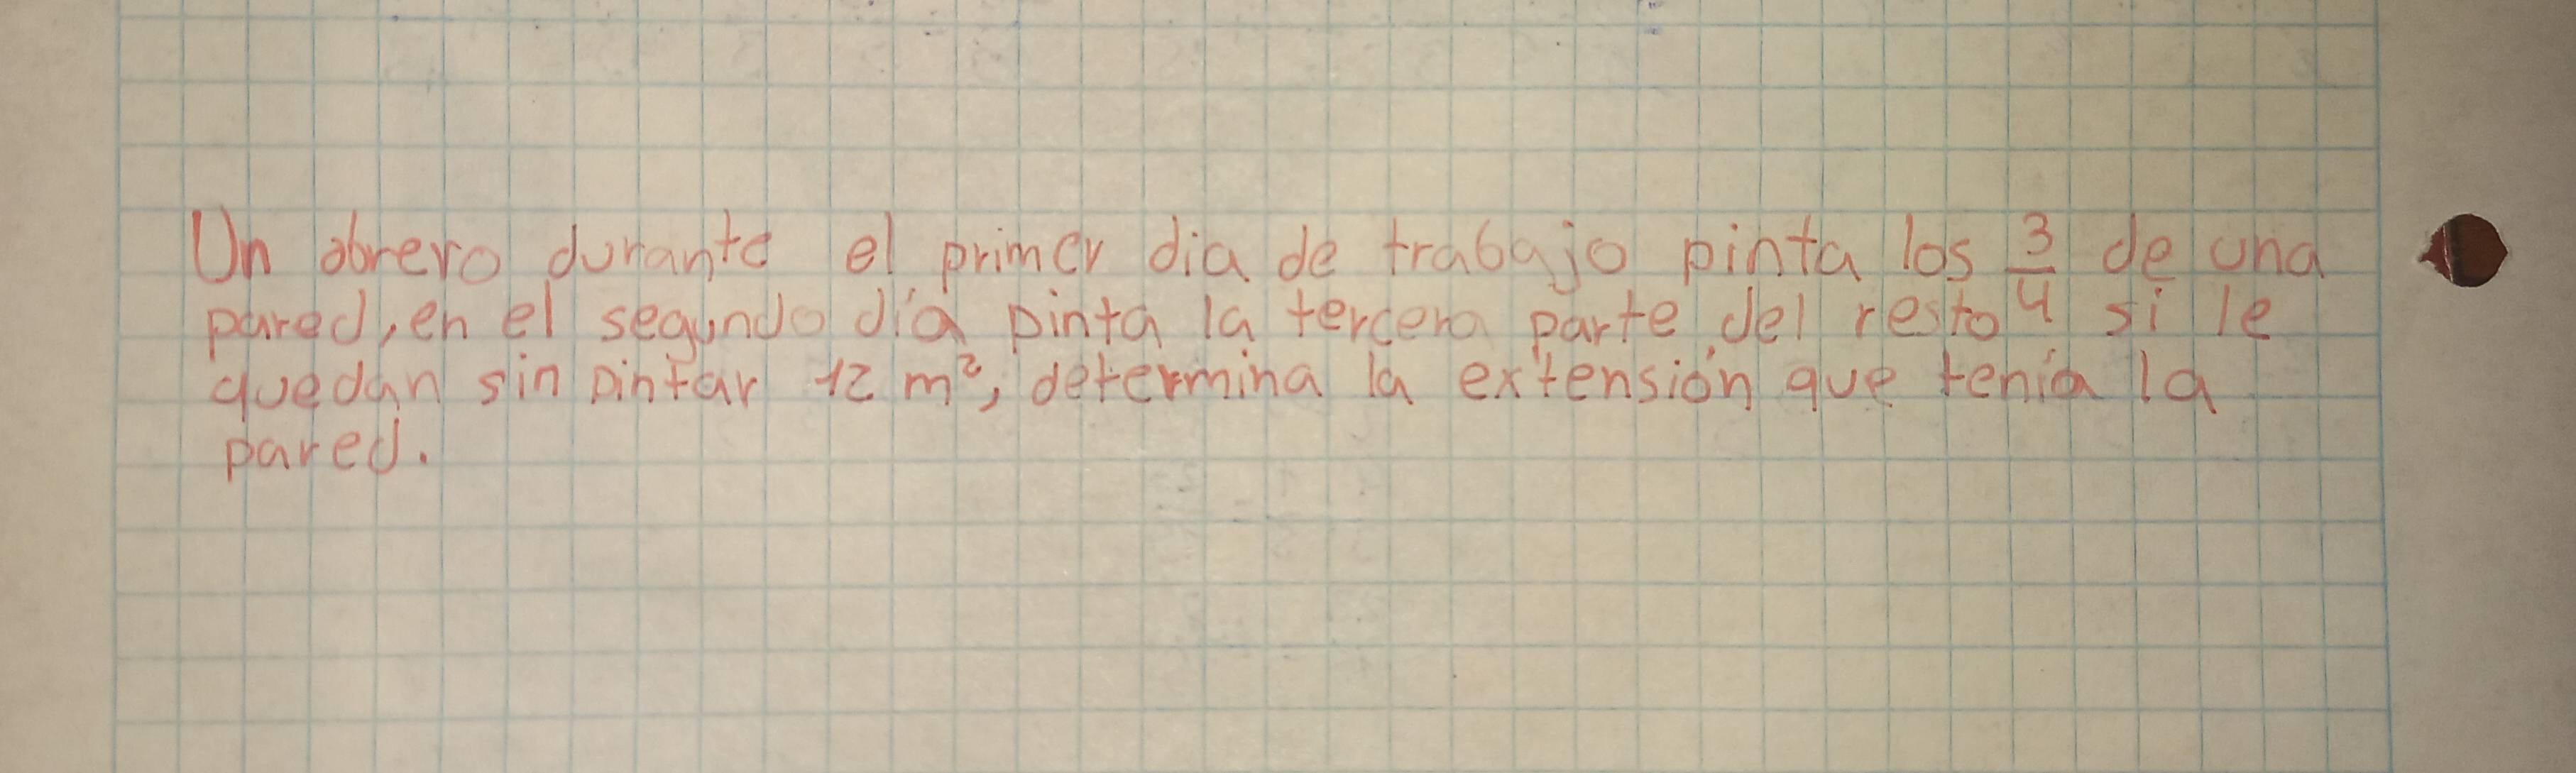 Un obrero durante el primer dia de trabajo pinta los 3/4 de una
pared, en el segundo día pinta la tercera parte del resto si le
quedan sin pintar 12 m², determina la extensión que tenía la
pared.